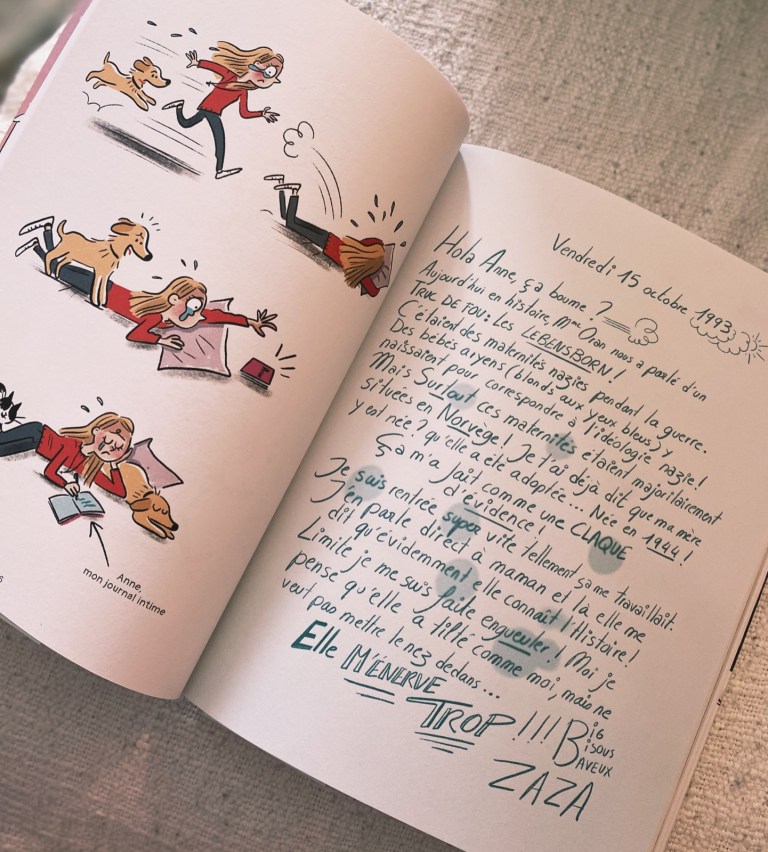 6
Anne,
mon journal intime
Vendredi 15 octobre 1993
Hola Anne, ça boume ?
Aujourd'hui en histoire, Mme Oran nous a parlé d'un
TRUC DE FOU : Les LEBENSBORN !
C'étaient des maternités nazies pendant la guerre.
Des bébés aryens (blonds aux yeux bleus) y
naissaient pour correspondre à l'idéologie nazie !
Mais Surtout ces maternités étaient majoritairement
situées en Norvège ! Je t'ai déjà dit que ma mère
y est née ? qu'elle a été adoptée... Née en 1944 !
Ça m'a fait comme une CLAQUE
d'évidence !
Je suis rentrée super vite tellement ça me travaillait.
J'en parle direct à maman et là elle me
dit qu'évidemment elle connaît l'Histoire !
Limite je me suis faite engueuler ! Moi je
pense qu'elle a tilté comme moi, mais ne
veut pas mettre le nez dedans...
Elle M'ÉNERVE
TROP !!!
BiG
Bisous
BAVEUX
ZAZA